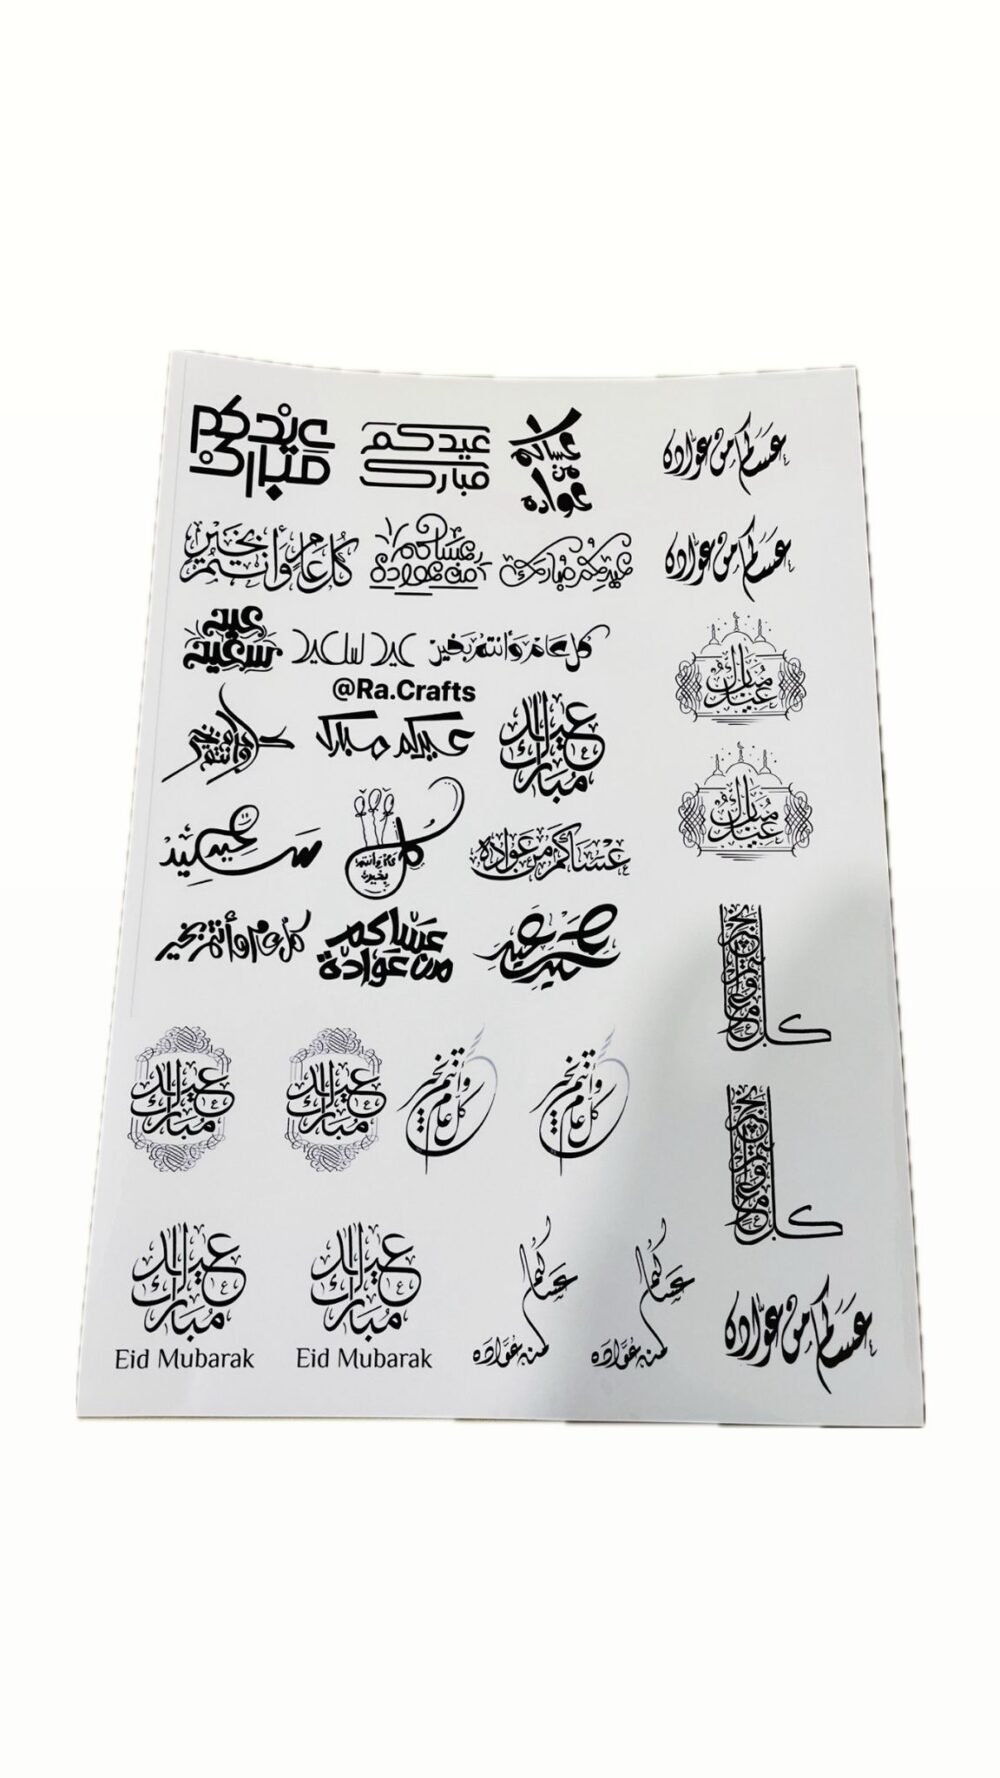 عيدكم مبارك
عيدكم مبارك
عساكم من عواده
عساكم من عوّاده
كُل عَام وَأنتُم بخَيْر
عساكم من عواده
عيدكم مبارك
عساكم من عوّاده
عيد سعيد
عيد سعيد
كل عام وأنتم بخير
عيد مبارك
@Ra.Crafts
كل عام وأنتم بخير
عيدكم مبارك
عيد مبارك
عيد مبارك
عيد سعيد
كل عام وأنتم بخير
عساكم من عواده
كل عام وأنتم بخير
عساكم من عوادة
عيد سعيد
كل عام وأنتم بخير
عيد مبارك
عيد مبارك
كل عام وأنتم بخير
كل عام وأنتم بخير
كل عام وأنتم بخير
عيد مبارك
Eid Mubarak
عيد مبارك
Eid Mubarak
عساكم من عوّاده
عساكم من عوّاده
عساكم من عوّاده